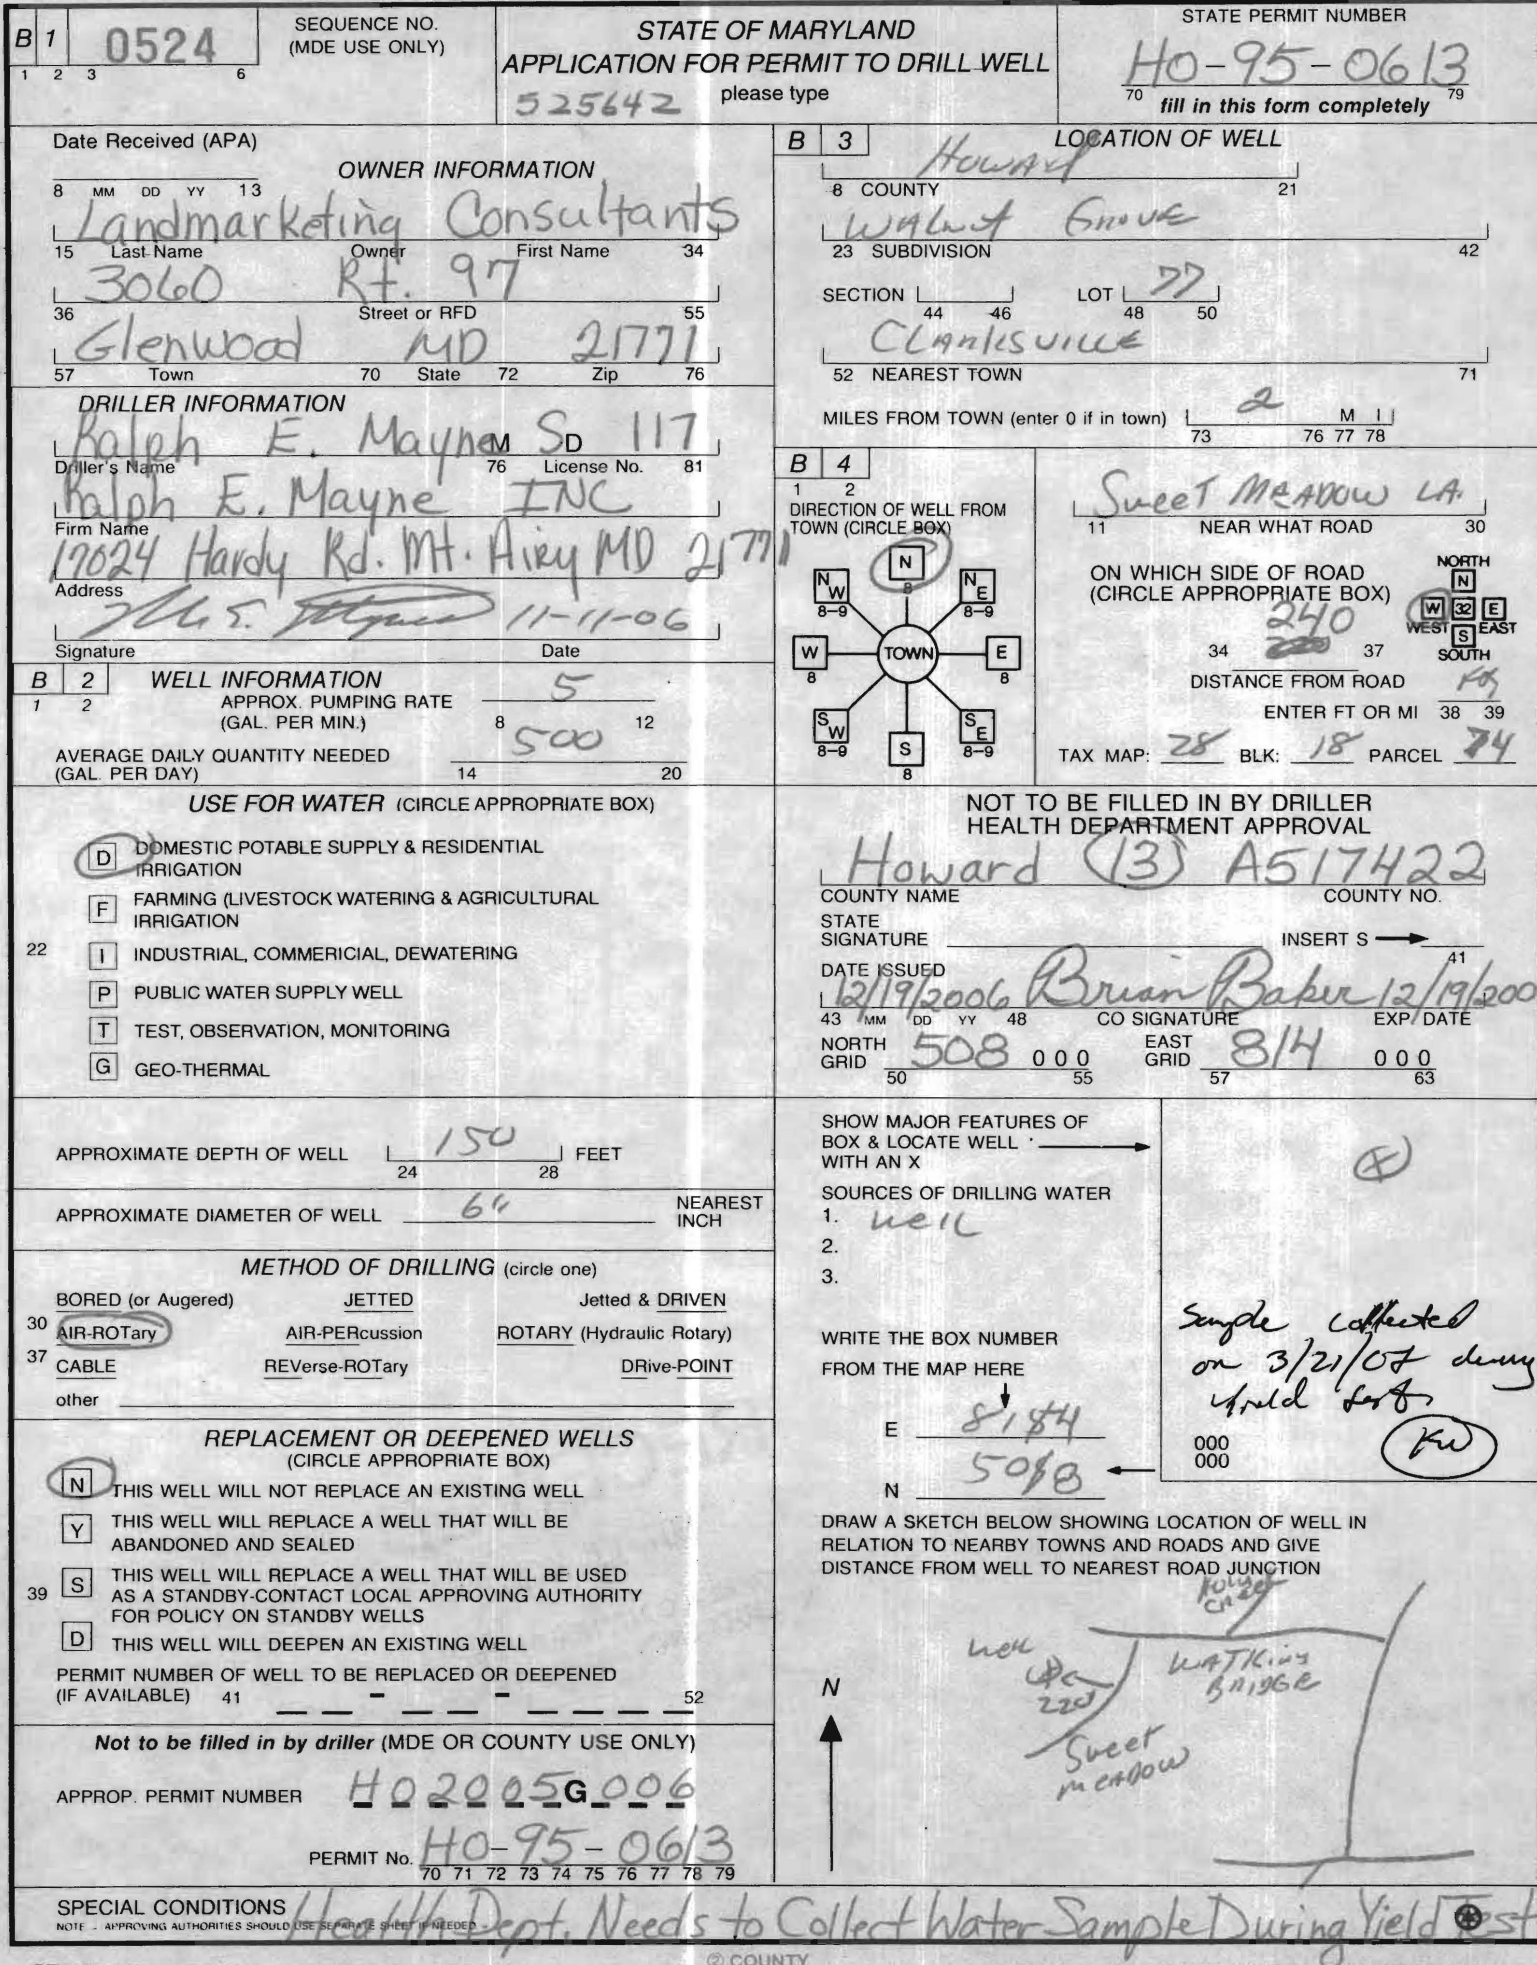 B 1
0524
1 2 3 6
SEQUENCE NO.
(MDE USE ONLY)
STATE OF MARYLAND
APPLICATION FOR PERMIT TO DRILL WELL
525642 please type
STATE PERMIT NUMBER
HO-95-0613
70 fill in this form completely 79
Date Received (APA)
8 MM DD YY 13
OWNER INFORMATION
Landmarketing Consultants
15 Last Name Owner First Name 34
3060 Rt. 97
36 Street or RFD 55
Glenwood MD 21771
57 Town 70 State 72 Zip 76
DRILLER INFORMATION
Ralph E. Mayne M S D 117
Driller's Name 76 License No. 81
Ralph E. Mayne INC
Firm Name
17024 Hardy Rd. Mt. Airy MD 21771
Address
11-11-06
Signature Date
B 2 WELL INFORMATION
1 2
APPROX. PUMPING RATE
(GAL. PER MIN.) 8 5 12
AVERAGE DAILY QUANTITY NEEDED
(GAL. PER DAY) 14 500 20
USE FOR WATER (CIRCLE APPROPRIATE BOX)
D DOMESTIC POTABLE SUPPLY & RESIDENTIAL
IRRIGATION
F FARMING (LIVESTOCK WATERING & AGRICULTURAL
IRRIGATION
22 I INDUSTRIAL, COMMERICIAL, DEWATERING
P PUBLIC WATER SUPPLY WELL
T TEST, OBSERVATION, MONITORING
G GEO-THERMAL
APPROXIMATE DEPTH OF WELL 150 FEET
24 28
APPROXIMATE DIAMETER OF WELL 6" NEAREST
INCH
METHOD OF DRILLING (circle one)
BORED (or Augered) JETTED Jetted & DRIVEN
30 AIR-ROTary AIR-PERcussion ROTARY (Hydraulic Rotary)
37 CABLE REVerse-ROTary DRive-POINT
other
REPLACEMENT OR DEEPENED WELLS
(CIRCLE APPROPRIATE BOX)
N THIS WELL WILL NOT REPLACE AN EXISTING WELL
Y THIS WELL WILL REPLACE A WELL THAT WILL BE
ABANDONED AND SEALED
39 S THIS WELL WILL REPLACE A WELL THAT WILL BE USED
AS A STANDBY-CONTACT LOCAL APPROVING AUTHORITY
FOR POLICY ON STANDBY WELLS
D THIS WELL WILL DEEPEN AN EXISTING WELL
PERMIT NUMBER OF WELL TO BE REPLACED OR DEEPENED
(IF AVAILABLE) 41 - - 52
Not to be filled in by driller (MDE OR COUNTY USE ONLY)
APPROP. PERMIT NUMBER HO2005G006
PERMIT No. HO-95-0613
70 71 72 73 74 75 76 77 78 79
B 3 LOCATION OF WELL
Howard
8 COUNTY 21
Walnut Grove
23 SUBDIVISION 42
SECTION LOT 77
44 46 48 50
Clarksville
52 NEAREST TOWN 71
MILES FROM TOWN (enter 0 if in town) 2 M I
73 76 77 78
B 4
1 2
DIRECTION OF WELL FROM
TOWN (CIRCLE BOX)
N
8
NW NE
8-9 8-9
W TOWN E
8 8
SW SE
8-9 S 8-9
8
Sweet Meadow LA.
11 NEAR WHAT ROAD 30
ON WHICH SIDE OF ROAD
(CIRCLE APPROPRIATE BOX)
NORTH
N
W 32 E
WEST S EAST
SOUTH
240
34 37
DISTANCE FROM ROAD
ENTER FT OR MI 38 39
TAX MAP: 28 BLK: 18 PARCEL 74
NOT TO BE FILLED IN BY DRILLER
HEALTH DEPARTMENT APPROVAL
Howard (13) A517422
COUNTY NAME COUNTY NO.
STATE
SIGNATURE INSERT S
41
DATE ISSUED
12/19/2006 Brian Baker 12/19/200
43 MM DD YY 48 CO SIGNATURE EXP. DATE
NORTH
GRID 508 000 EAST
GRID 814 000
50 55 57 63
SHOW MAJOR FEATURES OF
BOX & LOCATE WELL
WITH AN X
X
SOURCES OF DRILLING WATER
1. well
2.
3.
WRITE THE BOX NUMBER
FROM THE MAP HERE
E 8184
N 5018
Sample collected
on 3/21/07 during
yield test
000
000
KW
DRAW A SKETCH BELOW SHOWING LOCATION OF WELL IN
RELATION TO NEARBY TOWNS AND ROADS AND GIVE
DISTANCE FROM WELL TO NEAREST ROAD JUNCTION
well
220
Watkins
Bridge
Sweet
Meadow
N
SPECIAL CONDITIONS
NOTE - APPROVING AUTHORITIES SHOULD USE SEPARATE SHEET IF NEEDED -
Health Dept. Needs to Collect Water Sample During Yield Test
COUNTY